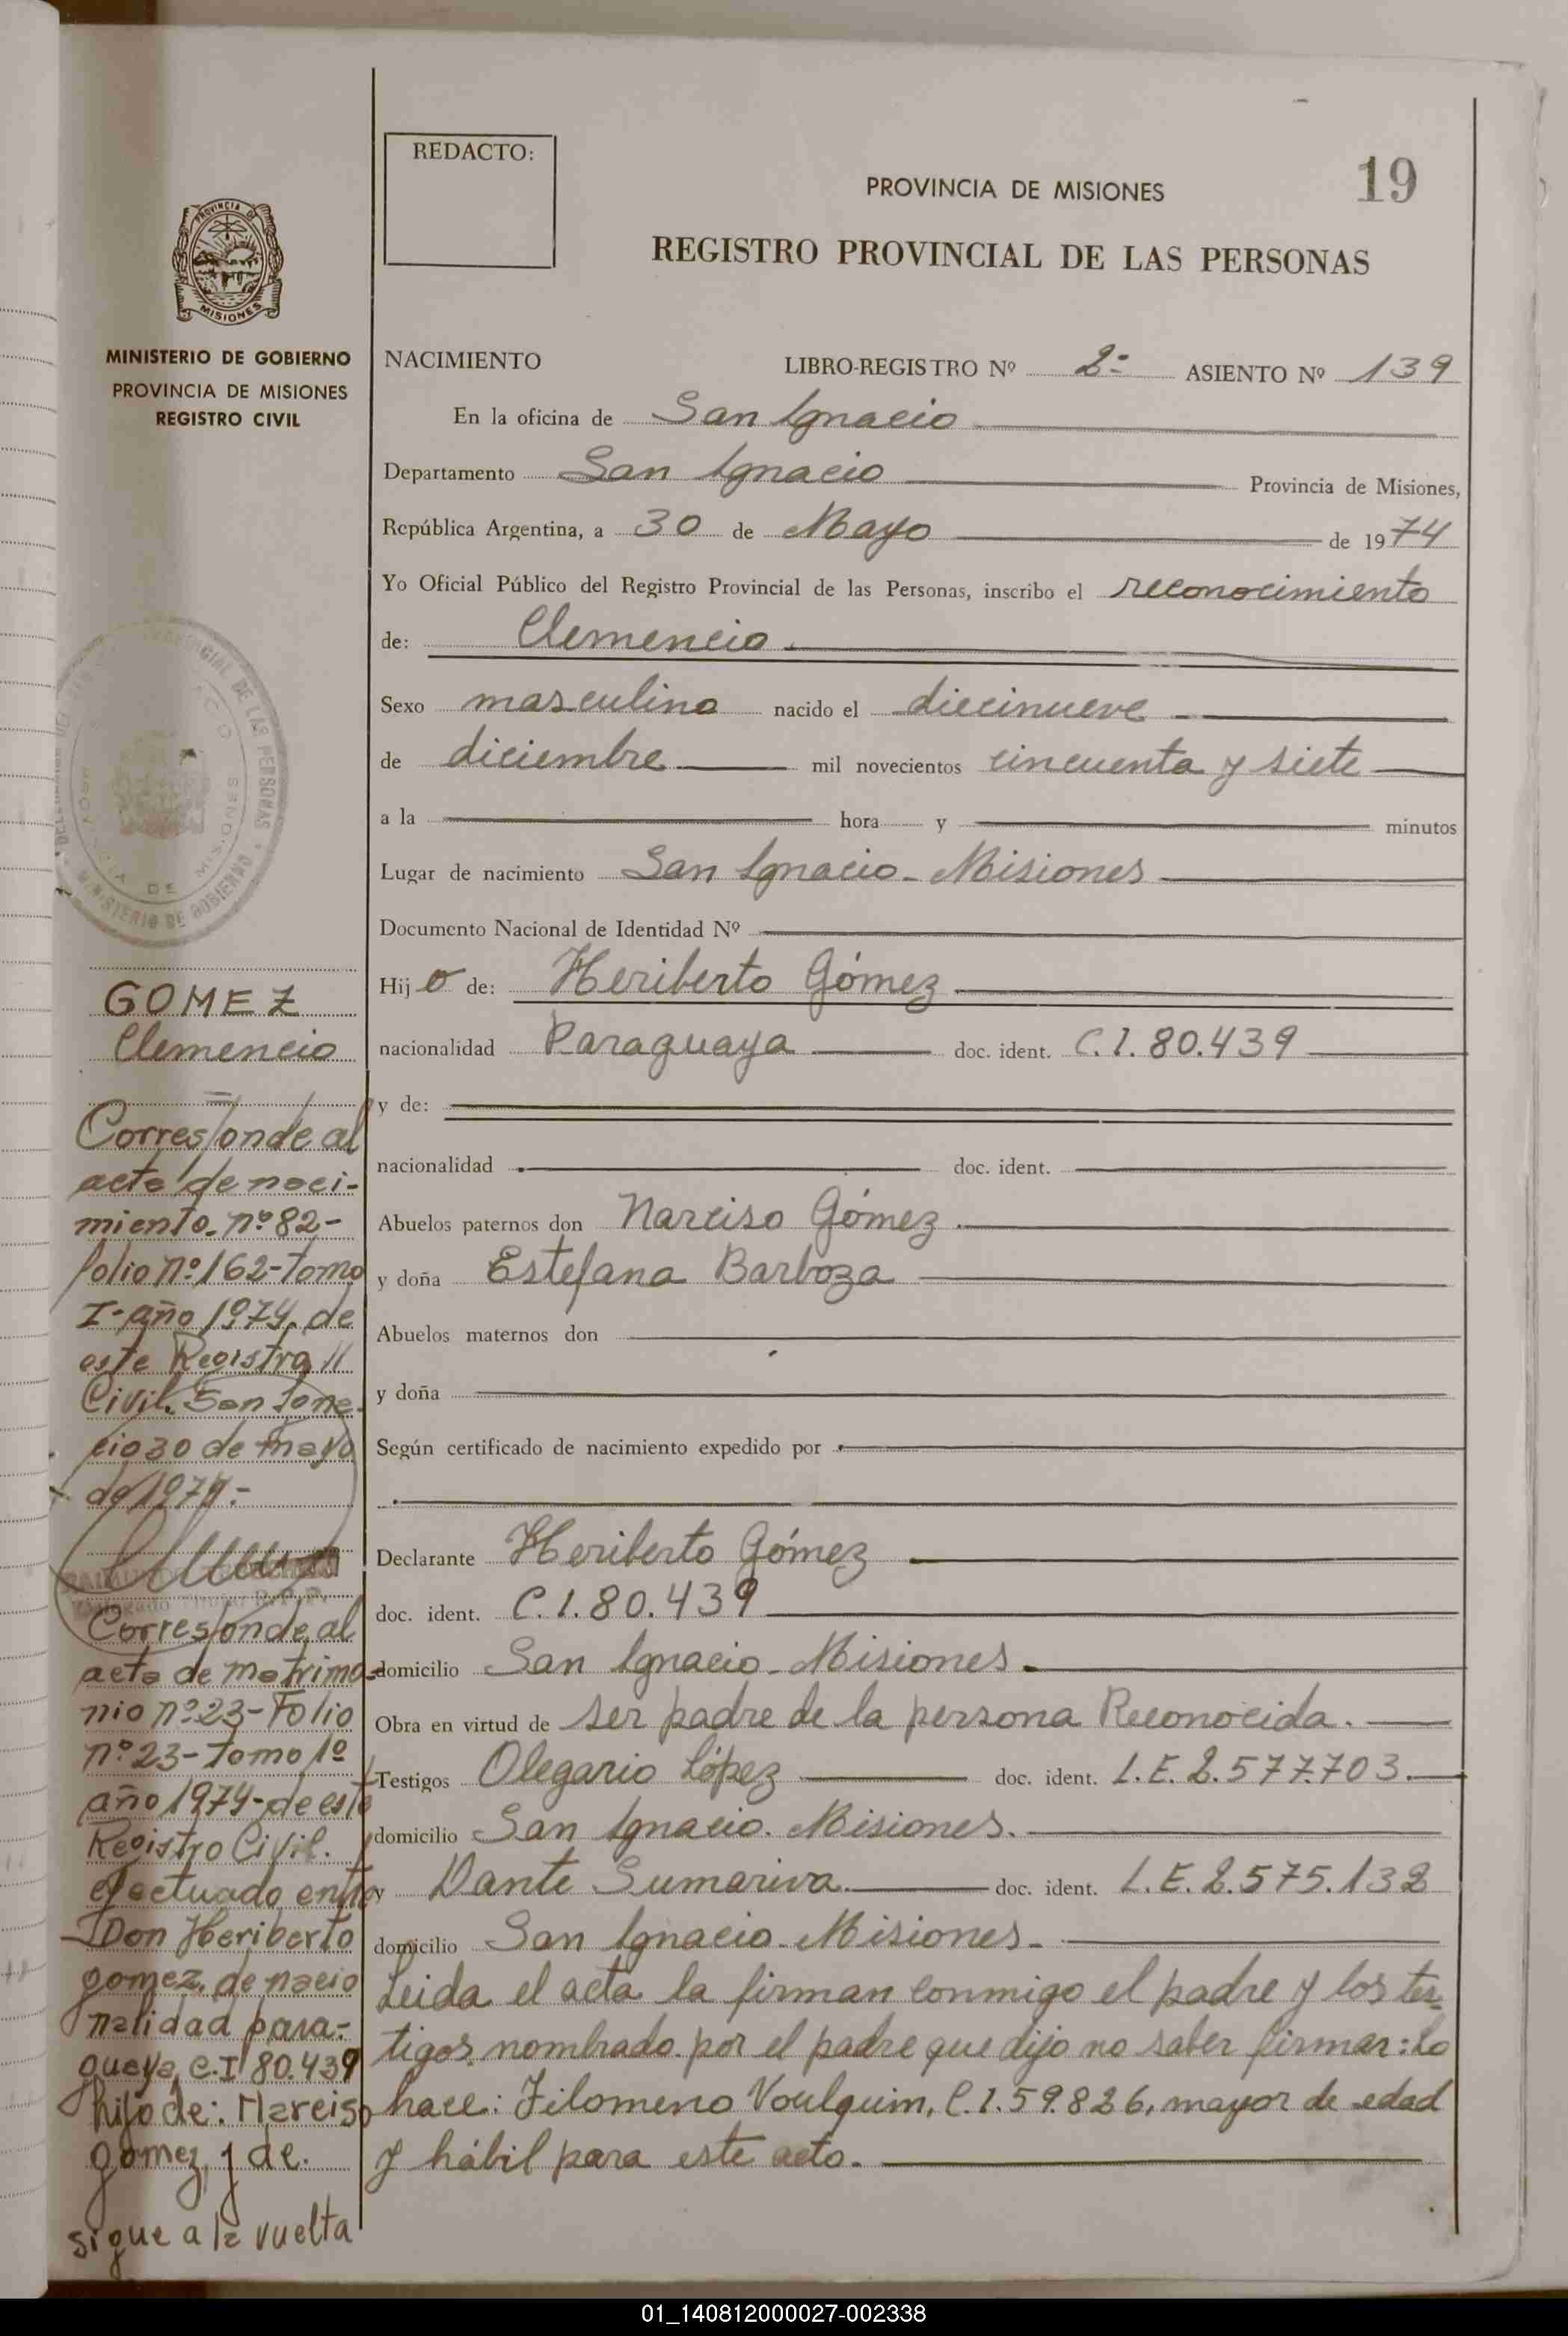 REDACTO:
19
PROVINCIA DE MISIONES
REGISTRO PROVINCIAL DE LAS PERSONAS
PROVINCIA DE
MISIONES
MINISTERIO DE GOBIERNO
PROVINCIA DE MISIONES
REGISTRO CIVIL
NACIMIENTO LIBRO-REGISTRO Nº 2- ASIENTO Nº 139
En la oficina de San Ignacio
Departamento San Ignacio Provincia de Misiones,
República Argentina, a 30 de Mayo de 1974
Yo Oficial Público del Registro Provincial de las Personas, inscribo el reconocimiento
de: Clemencio.
Sexo masculino nacido el diecinueve
de diciembre mil novecientos cincuenta y siete
a la hora y minutos
Lugar de nacimiento San Ignacio - Misiones
Documento Nacional de Identidad Nº
Hijo de: Heriberto Gómez
nacionalidad Paraguaya doc. ident. C.I. 80.439
y de:
nacionalidad doc. ident.
Abuelos paternos don Narciso Gómez.
y doña Estefana Barboza
Abuelos maternos don
y doña
Según certificado de nacimiento expedido por
Declarante Heriberto Gómez
doc. ident. C.I. 80.439
domicilio San Ignacio - Misiones.
Obra en virtud de ser padre de la persona Reconocida.
Testigos Olegario López doc. ident. L.E. 2.577.703.
domicilio San Ignacio. Misiones.
y Dante Sumariva. doc. ident. L.E. 2.575.132
domicilio San Ignacio - Misiones -
Leida el acta la firman conmigo el padre y los tes-
tigos. nombrado por el padre que dijo no saber firmar: lo
hace: Filomeno Voulquim, C.I. 59.826, mayor de edad
y hábil para este acto.
GOMEZ
Clemencio
Corresponde al
acta de naci-
miento. nº 82-
folio nº 162-Tomo
I- año 1974, de
este Registro
Civil. San Igna-
cio 30 de mayo
de 1974.-
Corresponde al
acta de matrimo-
nio nº 23-Folio
nº 23-Tomo 1º
año 1974-de este
Registro Civil.
efectuado entre
Don Heriberto
gomez. de nacio
nalidad para-
guaya, C.I 80.439
hijo de: Narciso
gomez, y de.
sigue a la vuelta
01_140812000027-002338